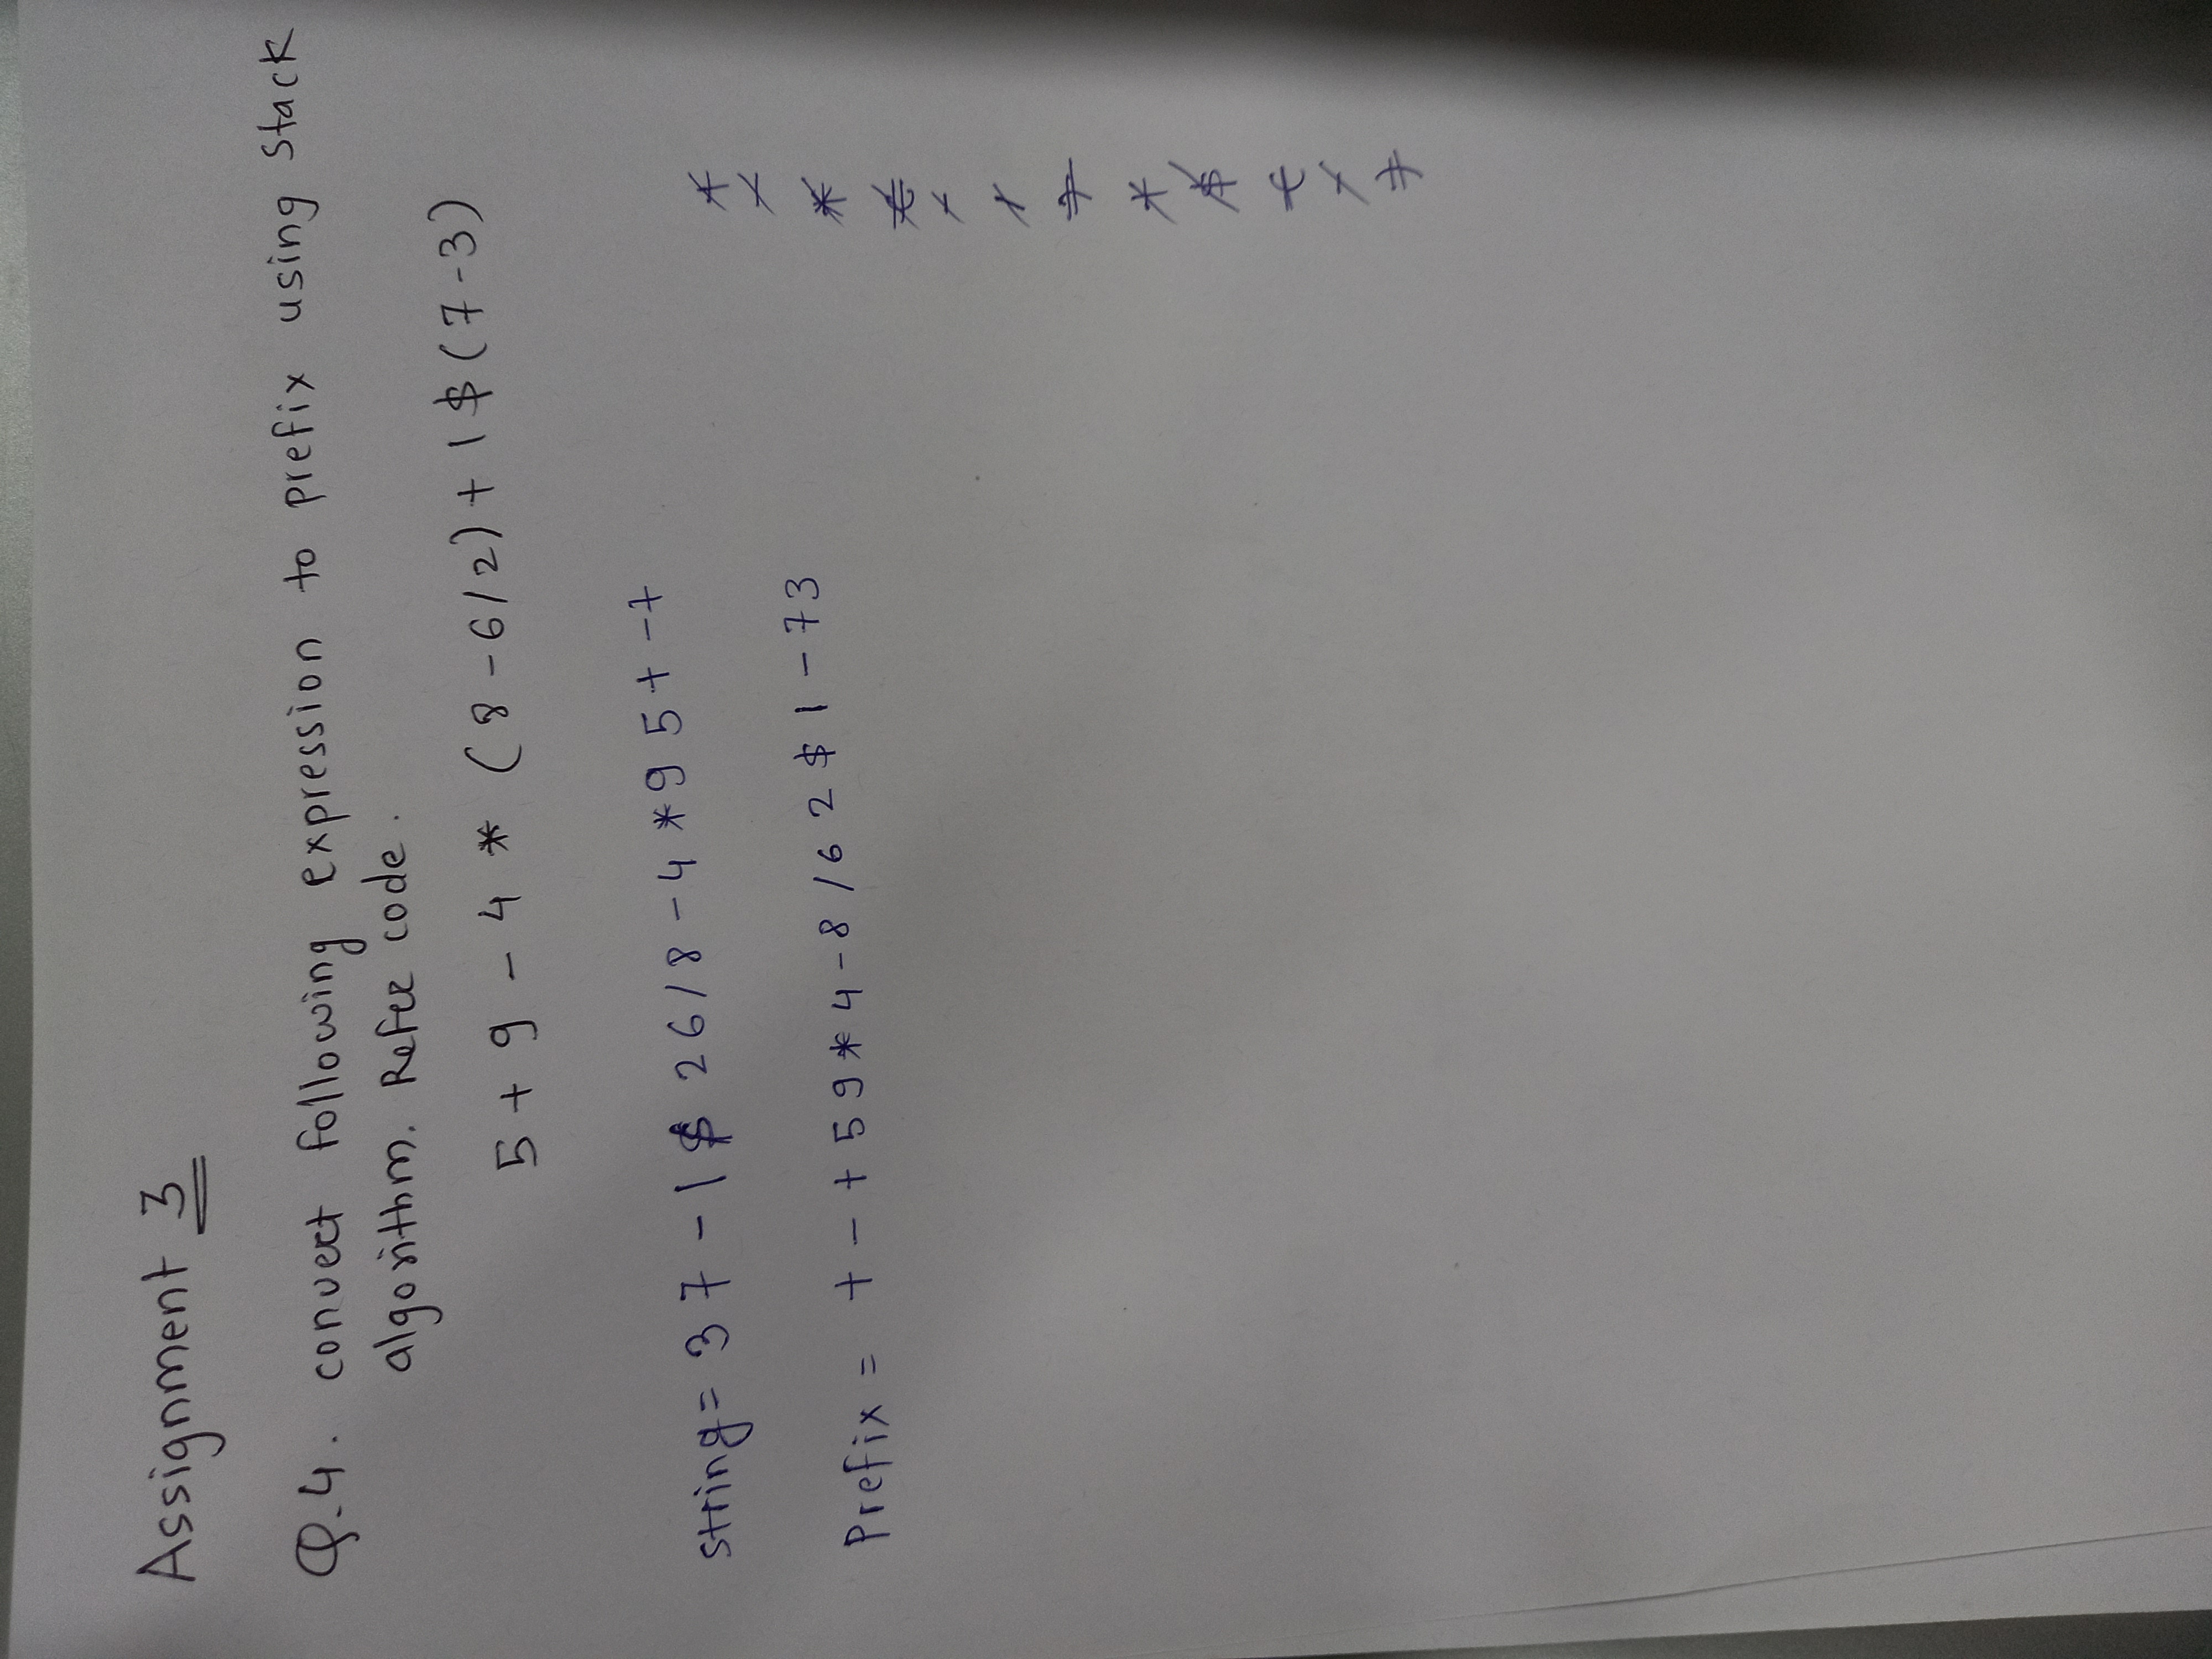 Assignment 3
Q.4. convert following expression to prefix using stack
algorithm. Refer code.
5 + 9 - 4 * (8 - 6/2) + 1 $ (7 - 3)
string = 3 7 - 1 $ 2 6 / 8 - 4 * 9 5 + - +
Prefix = + - + 5 9 * 4 - 8 / 6 2 $ 1 - 7 3